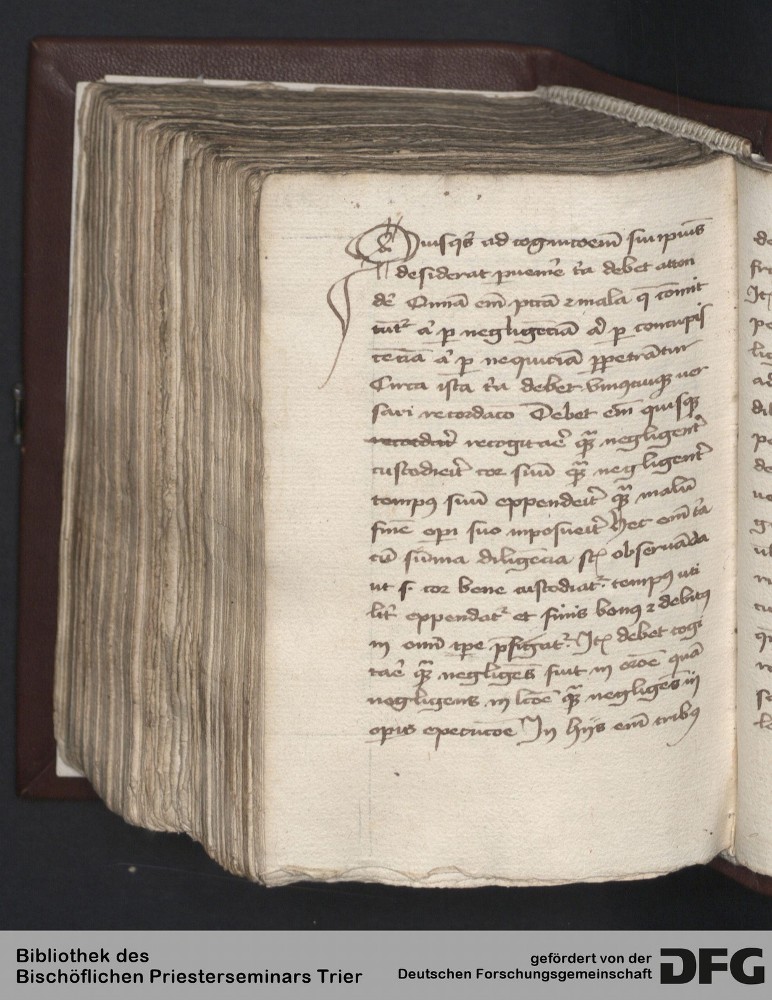 Quisqs ad cognicoem sui ipius
desiderat puenire tria debet atten
de Omnia em pcta 2 mala q comit
tutr a p negligecia a p concupis
cecia a p nequicia ppetrantur
Circa ista tria debet unusquisq ver
sari recordaco Debet em quisq
recogitare qua negligent
custodierit cor suu qua negligent
tempus suu expenderit qua malu
fine opi suo inposuerit Hec em tria
cu summa diligecia st observada
ut s cor bene custodiatr tempus uti
litr expendatr et finis bonus 2 debitus
in omi ope pfigatr Ite debet cogi
tare qua negliges fuit in oroe qua
negligens in lcoe qua negliges in
opis execucoe In hiis em tribus
Bibliothek des
Bischöflichen Priesterseminars Trier
gefördert von der
Deutschen Forschungsgemeinschaft
DFG